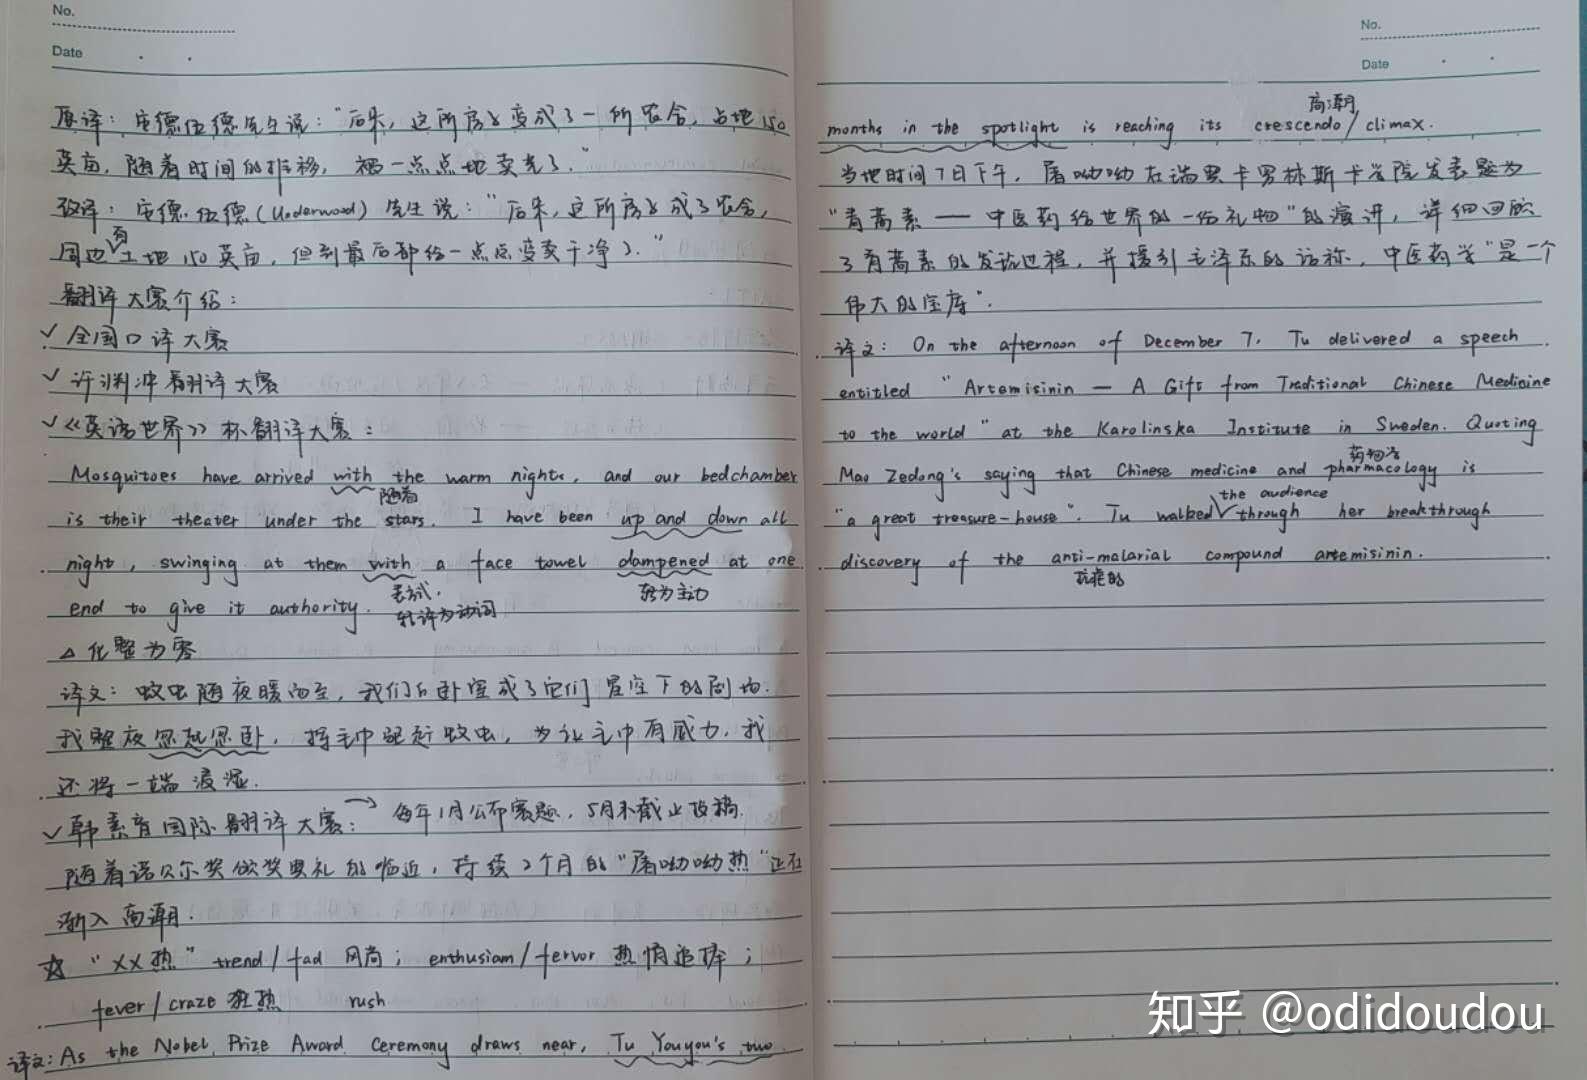 No.
Date
原译：安德伍德先生说：“后来，这所房子变成了一所农舍，占地150
英亩，随着时间的推移，被一点点地卖光了。”
改译：安德伍德(Underwood)先生说：“后来，这所房子成了农舍，
周边有土地150英亩，但到最后都给一点点变卖干净了.”
翻译大赛介绍：
✓ 全国口译大赛
✓ 许渊冲翻译大赛
✓《英语世界》杯翻译大赛：
Mosquitoes have arrived with the warm nights, and our bedchamber
随着
is their theater under the stars. I have been up and down all
night, swinging at them with a face towel dampened at one
方式, 转为主动
end to give it authority. 转译为动词
△ 化整为零
译文：蚊虫随夜暖而至，我们的卧室成了它们星空下的剧场.
我整夜忽起忽卧，挥毛巾驱赶蚊虫，为让毛巾有威力，我
还将一端浸湿.
✓ 韩素音国际翻译大赛：→ 每年1月公布赛题，5月末截止投稿.
随着诺贝尔奖颁奖典礼的临近，持续2个月的“屠呦呦热”正在
渐入高潮.
☆ “XX热” trend/fad 风尚； enthusiam/fervor 热情追捧；
fever/craze 狂热 rush
译文: As the Nobel Prize Award Ceremony draws near, Tu Youyou's two
No.
Date
高潮
months in the spotlight is reaching its crescendo/climax.
当地时间7日下午，屠呦呦在瑞典卡罗林斯卡学院发表题为
“青蒿素——中医药给世界的一份礼物”的演讲，详细回顾
了青蒿素的发现过程，并援引毛泽东的话称，中医药学“是一个
伟大的宝库”.
译文： On the afternoon of December 7, Tu delivered a speech
entitled “Artemisinin — A Gift from Traditional Chinese Medicine
to the world” at the Karolinska Institute in Sweden. Quoting
药物学
Mao Zedong's saying that Chinese medicine and pharmacology is
the audience
“a great treasure-house”. Tu walked through her breakthrough
discovery of the anti-malarial compound artemisinin.
抗疟的
知乎 @odidoudou